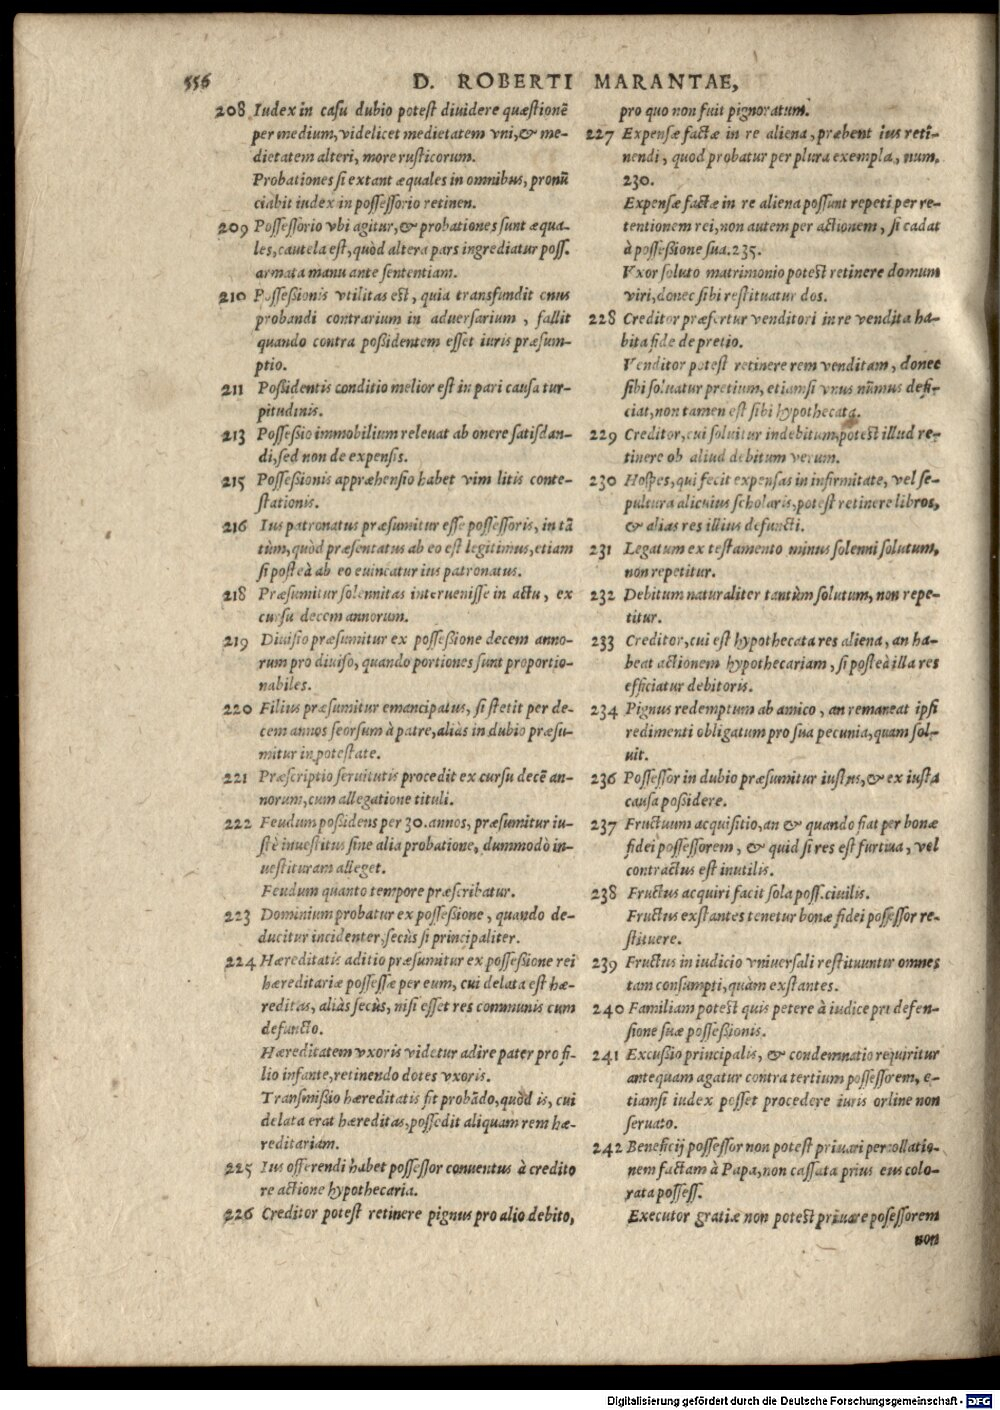 556
D. ROBERTI MARANTAE,
208 Iudex in casu dubio potest diuidere quæstionē
per medium, videlicet medietatem vni, & me-
dietatem alteri, more rusticorum.
Probationes si extant æquales in omnibus, pronū
ciabit iudex in possessorio retinen.
209 Possessorio vbi agitur, & probationes sunt æqua-
les, cautela est, quòd altera pars ingrediatur poss.
armata manu ante sententiam.
210 Possessionis vtilitas est, quia transfundit onus
probandi contrarium in aduersarium, fallit
quando contra possidentem esset iuris præsum-
ptio.
211 Possidentis conditio melior est in pari causa tur-
pitudinis.
213 Possessio immobilium releuat ab onere satisdan-
di, sed non de expensis.
215 Possessionis appræhensio habet vim litis conte-
stationis.
216 Ius patronatus præsumitur esse possessoris, in tā
tùm, quòd præsentatus ab eo est legitimus, etiam
si posteà ab eo euincatur ius patronatus.
218 Præsumitur solennitas interuenisse in actu, ex
cursu decem annorum.
219 Diuisio præsumitur ex possessione decem anno-
rum pro diuiso, quando portiones sunt proportio-
nabiles.
220 Filius præsumitur emancipatus, si stetit per de-
cem annos seorsum à patre, aliàs in dubio præsu-
mitur in potestate.
221 Præscriptio seruitutis procedit ex cursu decē an-
norum, cum allegatione tituli.
222 Feudum possidens per 30. annos, præsumitur iu-
stè inuestitus sine alia probatione, dummodò in-
uestituram alleget.
Feudum quanto tempore præscribatur.
223 Dominium probatur ex possessione, quando de-
ducitur incidenter, secùs si principaliter.
224 Hæreditatis aditio præsumitur ex possessione rei
hæreditariæ possessæ per eum, cui delata est hæ-
reditas, aliàs secùs, nisi esset res communis cum
defuncto.
Hæreditatem vxoris videtur adire pater pro fi-
lio infante, retinendo dotes vxoris.
Transmissio hæreditatis fit probādo, quòd is, cui
delata erat hæreditas, possedit aliquam rem hæ-
reditariam.
225 Ius offerendi habet possessor conuentus à credito
re actione hypothecaria.
226 Creditor potest retinere pignus pro alio debito,
pro quo non fuit pignoratum.
227 Expensæ factæ in re aliena, præbent ius reti-
nendi, quod probatur per plura exempla, num.
230.
Expensæ factæ in re aliena possunt repeti per re-
tentionem rei, non autem per actionem, si cadat
à possessione sua. 235.
Vxor soluto matrimonio potest retinere domum
viri, donec sibi restituatur dos.
228 Creditor præfertur venditori in re vendita ha-
bita fide de pretio.
Venditor potest retinere rem venditam, donec
sibi soluatur pretium, etiamsi vnus nūmus defi-
ciat, non tamen est sibi hypothecata.
229 Creditor, cui soluitur indebitum, potest illud re-
tinere ob aliud debitum verum.
230 Hospes, qui fecit expensas in infirmitate, vel se-
pultura alicuius scholaris, potest retinere libros,
& alias res illius defuncti.
231 Legatum ex testamento minus solenni solutum,
non repetitur.
232 Debitum naturaliter tantùm solutum, non repe-
titur.
233 Creditor, cui est hypothecata res aliena, an ha-
beat actionem hypothecariam, si posteà illa res
efficiatur debitoris.
234 Pignus redemptum ab amico, an remaneat ipsi
redimenti obligatum pro sua pecunia, quam sol-
uit.
236 Possessor in dubio præsumitur iustus, & ex iusta
causa possidere.
237 Fructuum acquisitio, an & quando fiat per bonæ
fidei possessorem, & quid si res est furtiua, vel
contractus est inutilis.
238 Fructus acquiri facit sola poss. ciuilis.
Fructus exstantes tenetur bonæ fidei possessor re-
stituere.
239 Fructus in iudicio vniuersali restituuntur omnes
tam consumpti, quàm exstantes.
240 Familiam potest quis petere à iudice pro defen-
sione suæ possessionis.
241 Excussio principalis, & condemnatio requiritur
antequam agatur contra tertium possessorem, e-
tiamsi iudex posset procedere iuris ordine non
seruato.
242 Beneficij possessor non potest priuari per collatio-
nem factam à Papa, non cassata prius eius colo-
rata possess.
Executor gratiæ non potest priuare posessorem
non
Digitalisierung gefördert durch die Deutsche Forschungsgemeinschaft - DFG